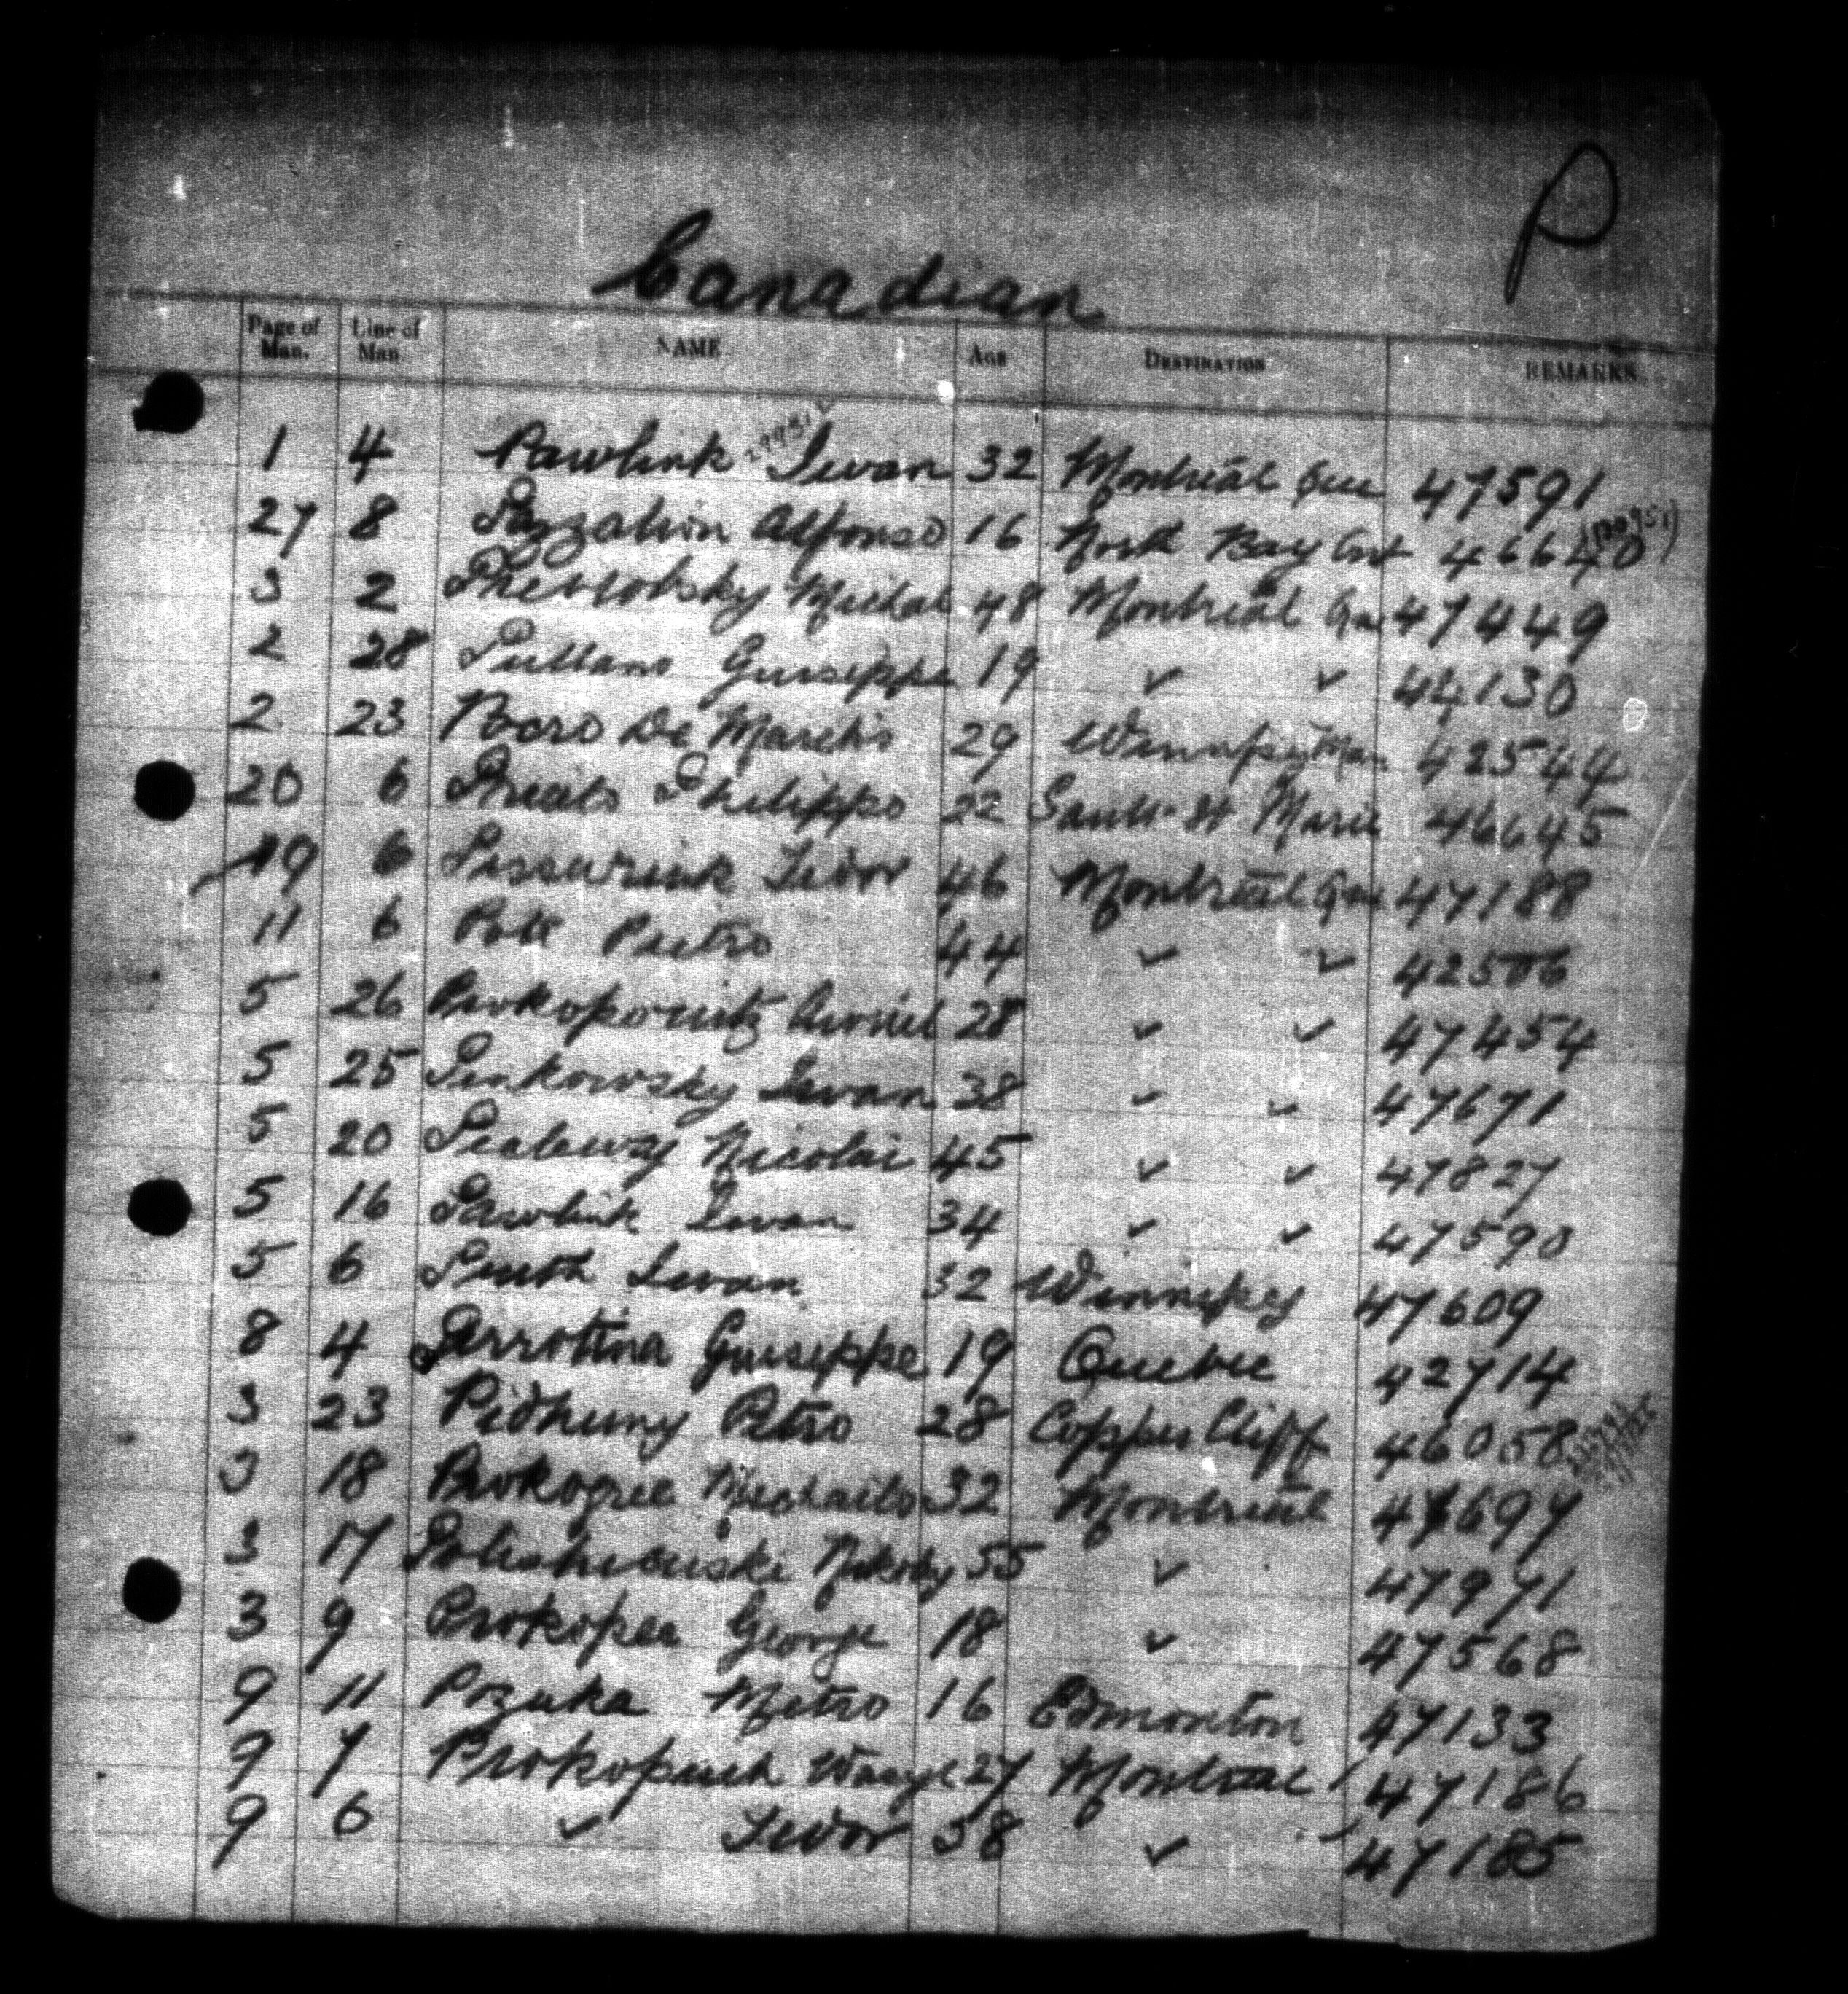 P
Canadian
Page of Man. Line of Man. NAME AGE DESTINATION REMARKS.
1 4 Pawlink Iwan 32 Montreal Que 47591
27 8 Alfonso 16 North Bay Ont 46640
3 2 Michal 48 Montreal Que 47449
2 28 Pullano Guiseppe 19 ✓ ✓ 44130
2 23 Pocro De Marchi 29 Winnipeg Man 42544
20 6 Philippo 22 Sault St Marie 46645
19 6 46 Montreal Que 47188
11 6 Pietro 44 ✓ ✓ 42506
5 26 Prokopowitz 28 ✓ ✓ 47454
5 25 Pinkowsky Iwan 38 ✓ ✓ 47671
5 20 Nicolai 45 ✓ ✓ 47827
5 16 Pawlink Iwan 34 ✓ ✓ 47590
5 6 Iwan 32 Winnipeg 47609
8 4 Perrotina Guiseppe 19 Quebec 42714
3 23 Pidhurny Petro 28 Copper Cliff 46058
3 18 Michailo 32 Montreal 47697
3 17 55 ✓ 47971
3 9 Prokopee George 18 ✓ 47568
9 11 Pozuka Metro 16 Edmonton 47133
9 7 Prokopiuch Wasyl 27 Montreal 47186
9 6 ✓ 38 ✓ 47185